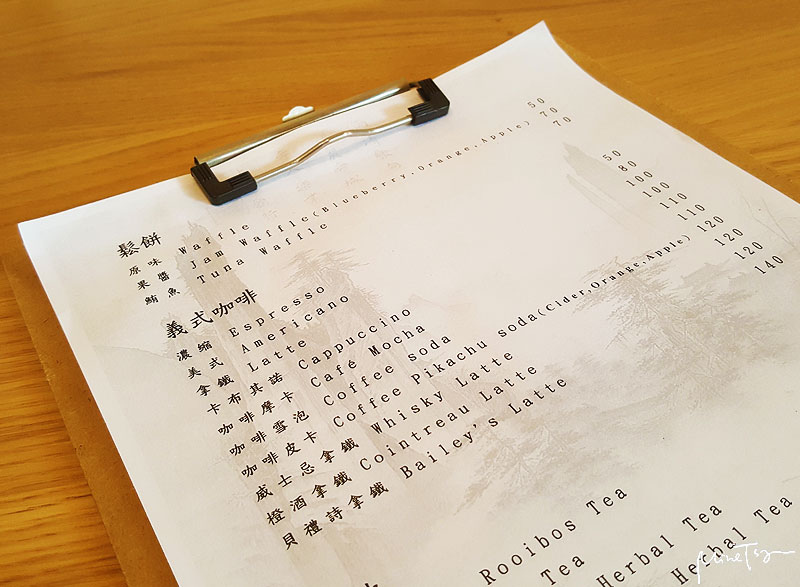 鬆餅
原味 Waffle 50
果醬 Jam Waffle(Blueberry,Orange,Apple) 70
鮪魚 Tuna Waffle 70
義式咖啡
濃縮 Espresso 50
美式 Americano 80
拿鐵 Latte 100
卡布其諾 Cappuccino 100
咖啡摩卡 Café Mocha 110
咖啡雪泡 Coffee soda 110
咖啡皮卡 Coffee Pikachu soda(Cider,Orange,Apple) 120
威士忌拿鐵 Whisky Latte 120
橙酒拿鐵 Cointreau Latte 120
貝禮詩拿鐵 Bailey's Latte 140
Rooibos Tea
Tea
Herbal Tea
Herbal Tea